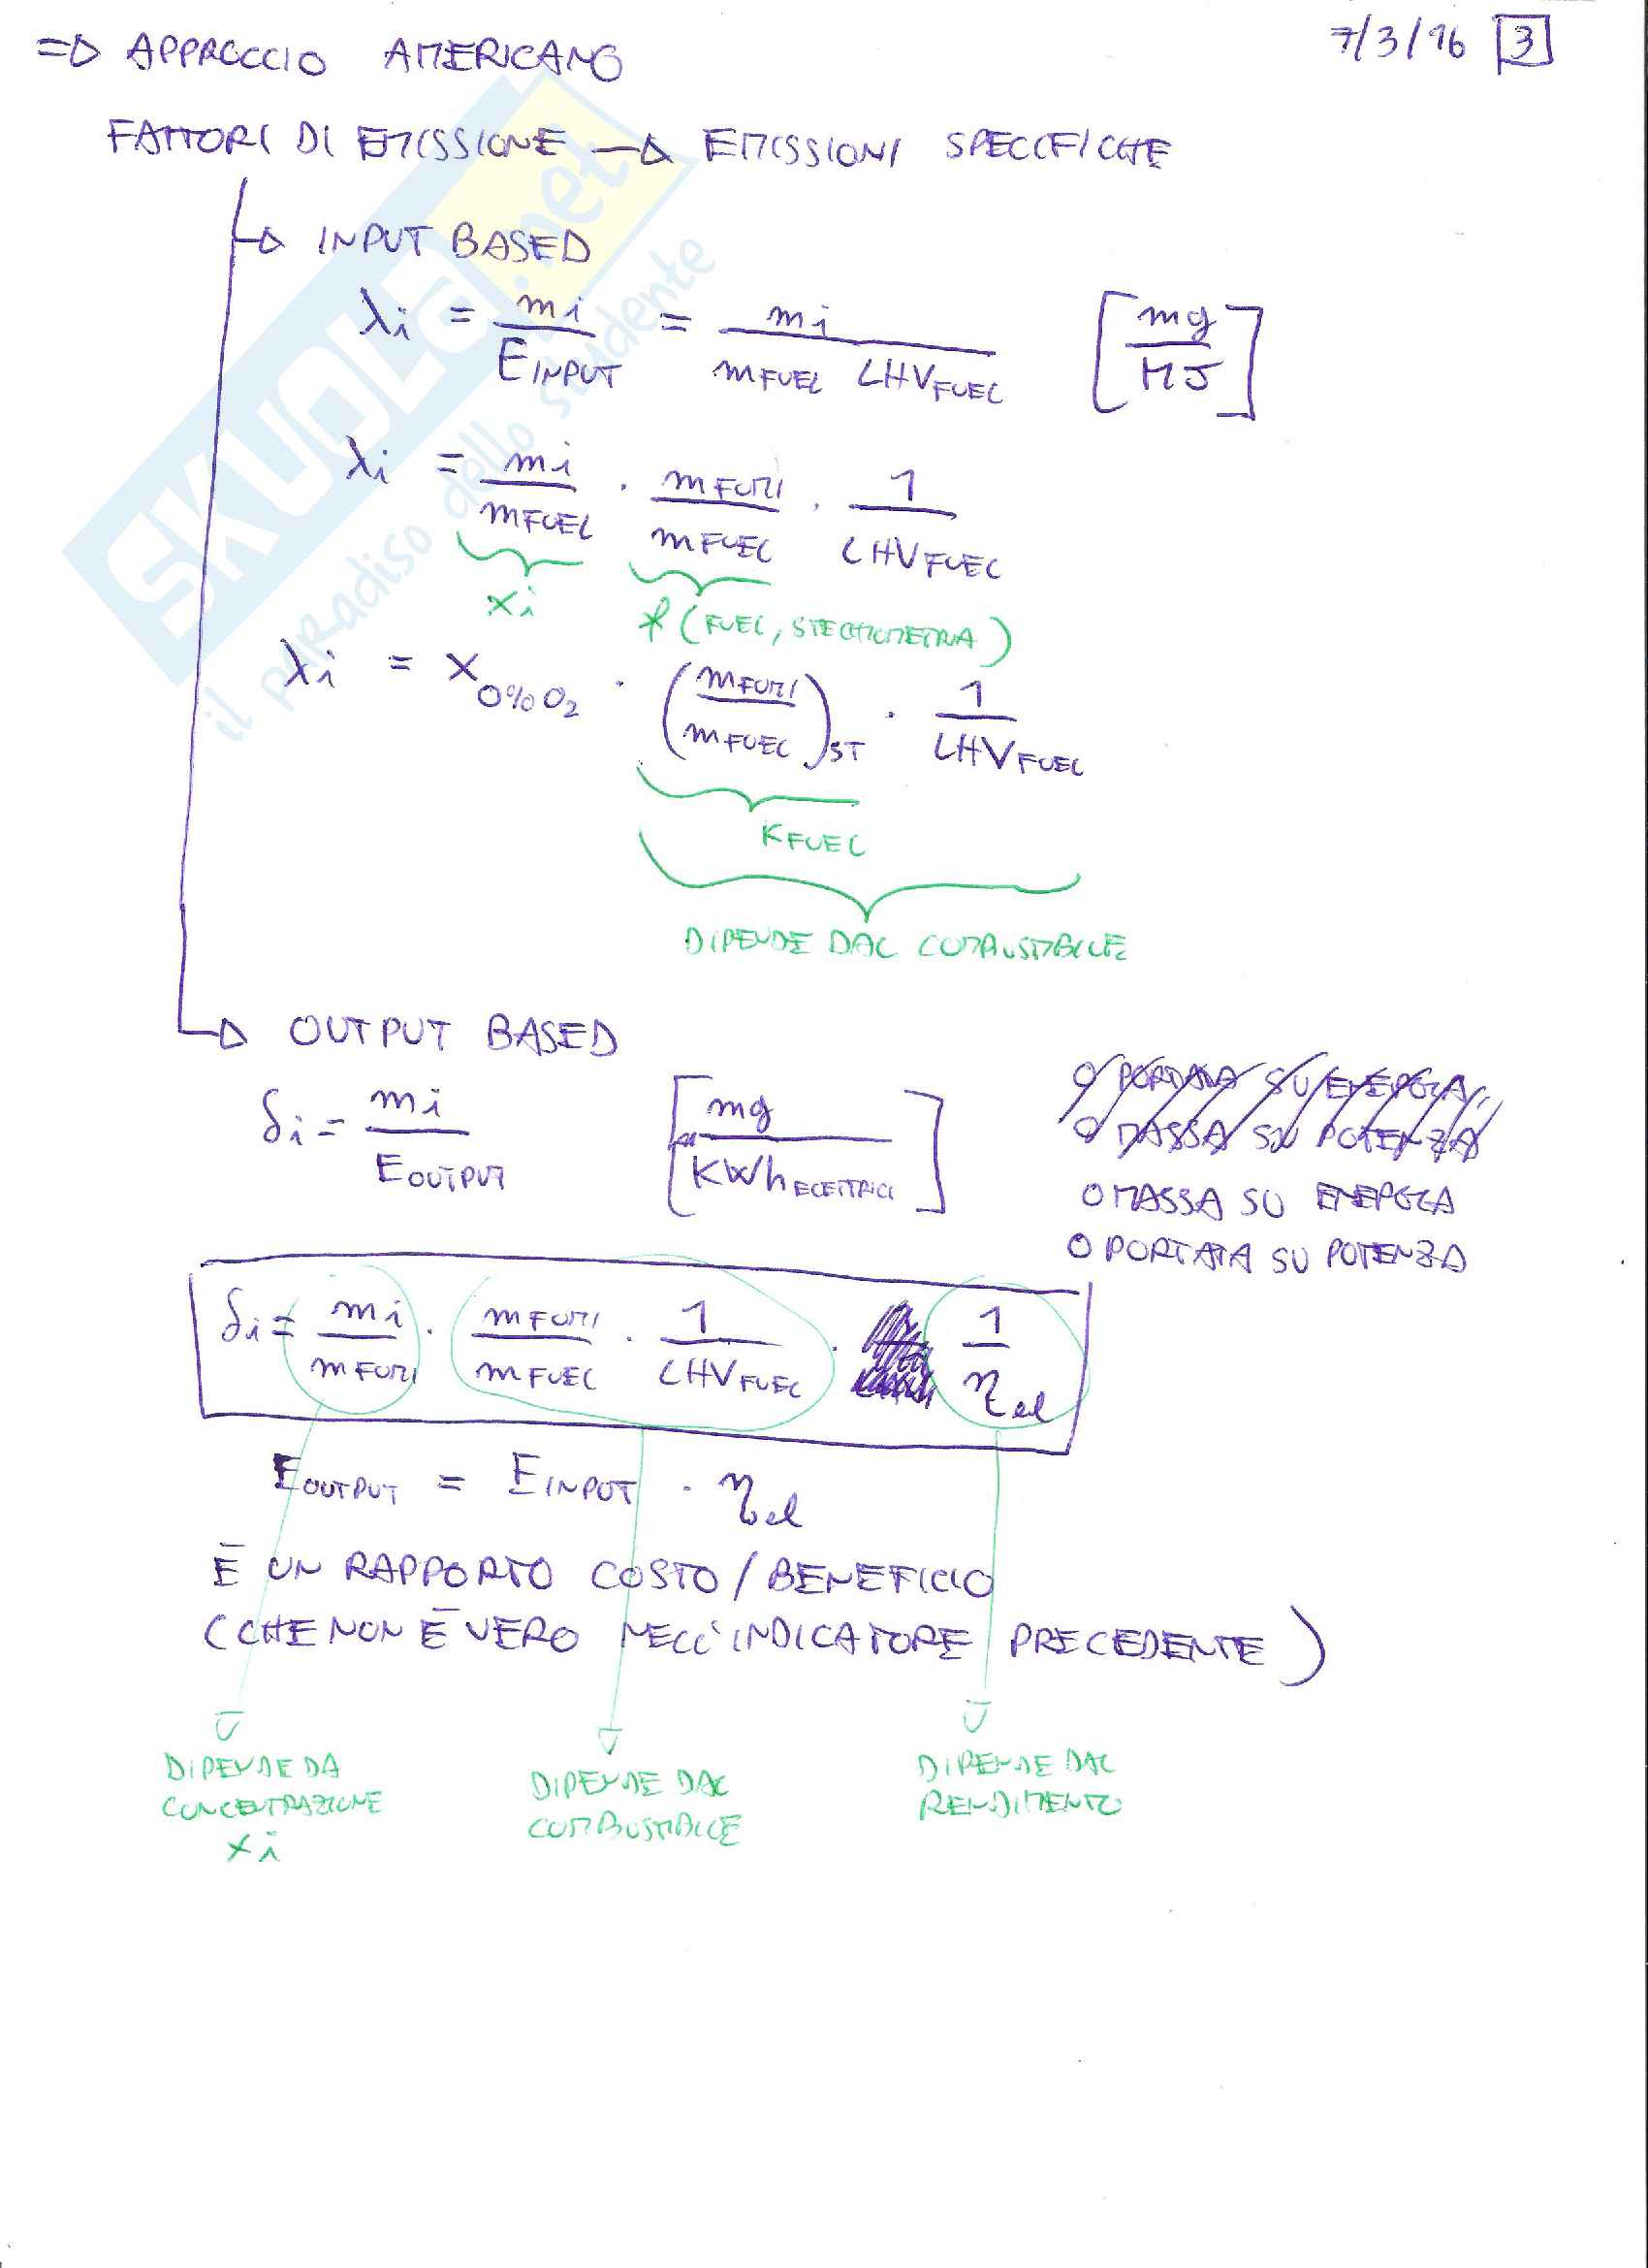 => APPROCCIO AMERICANO 7/3/16 3
FATTORI DI EMISSIONE → EMISSIONI SPECIFICHE
→ INPUT BASED
λi = mi / EINPUT = mi / (mFUEL LHVFUEL) [mg/MJ]
λi = mi/mFUEL · mFUMI/mFUEL · 1/LHVFUEL
xi f(FUEL, STECHIOMETRIA)
λi = x0%O2 · (mFUMI/mFUEL)ST · 1/LHVFUEL
KFUEL
DIPENDE DAL COMBUSTIBILE
→ OUTPUT BASED
O PORTATA SU ENERGIA
O MASSA SU POTENZA
δi = mi / EOUTPUT [mg/KWhELETTRICI]
O MASSA SU ENERGIA
O PORTATA SU POTENZA
δi = mi/mFUMI · mFUMI/mFUEL · 1/LHVFUEL · 1/ηel
EOUTPUT = EINPUT · ηel
È UN RAPPORTO COSTO/BENEFICIO
(CHE NON È VERO NELL'INDICATORE PRECEDENTE)
DIPENDE DA CONCENTRAZIONE xi
DIPENDE DAL COMBUSTIBILE
DIPENDE DAL RENDIMENTO
SKUOLA.net
il paradiso dello studente